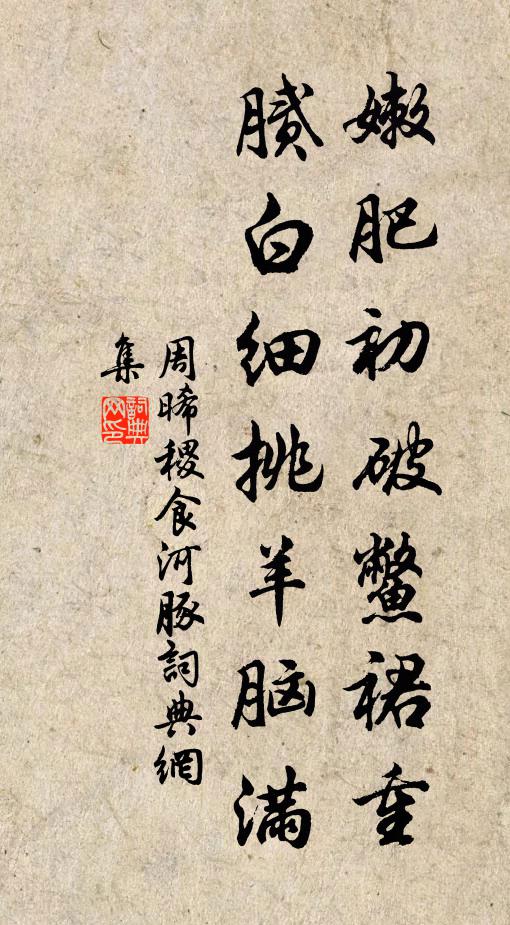 嫩肥初破鳖裙重
腻白细挑羊脑满
周晞稷食河豚詞典網
集
詞典
网印